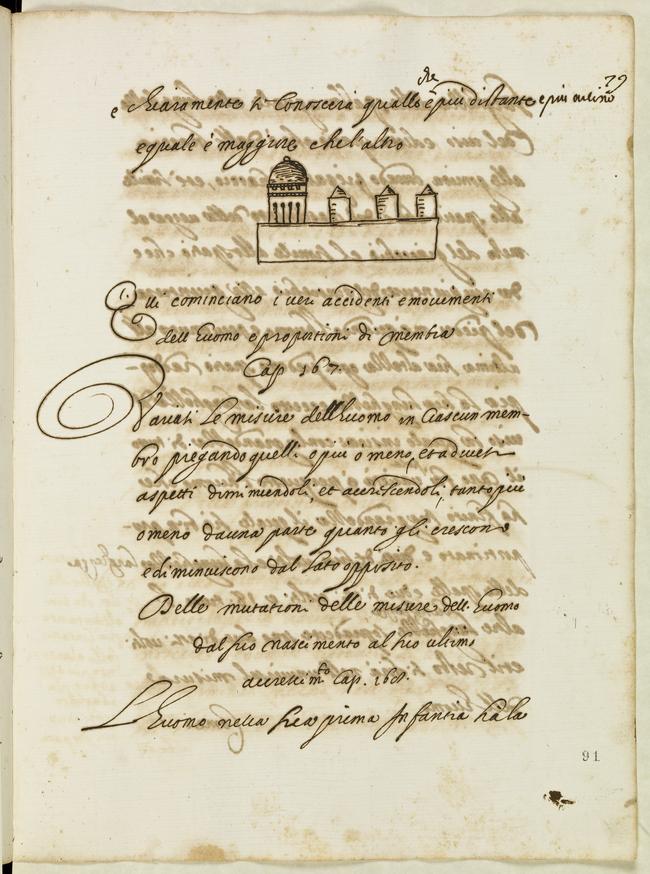 79
e chiaramente si conoscerà quallo che è più distante e più vicino
e quale è maggiore che l'altro
Qui cominciano i veri accidenti e movimenti
dell huomo e proportioni di membra
Cap 167.
Variati Le misure dell'huomo in ciascun mem-
bro piegando quelli o più o meno, et a diversi
aspetti diminuendoli, et accrescendoli, tanto più
o meno da una parte quanto gli crescono
e diminuiscono dal Lato opposito.
Delle mutationi delle misure dell. huomo
dal suo nascimento al suo ultimo
accrescimto Cap. 168.
L'huomo nella sua prima Infantia ha la
91